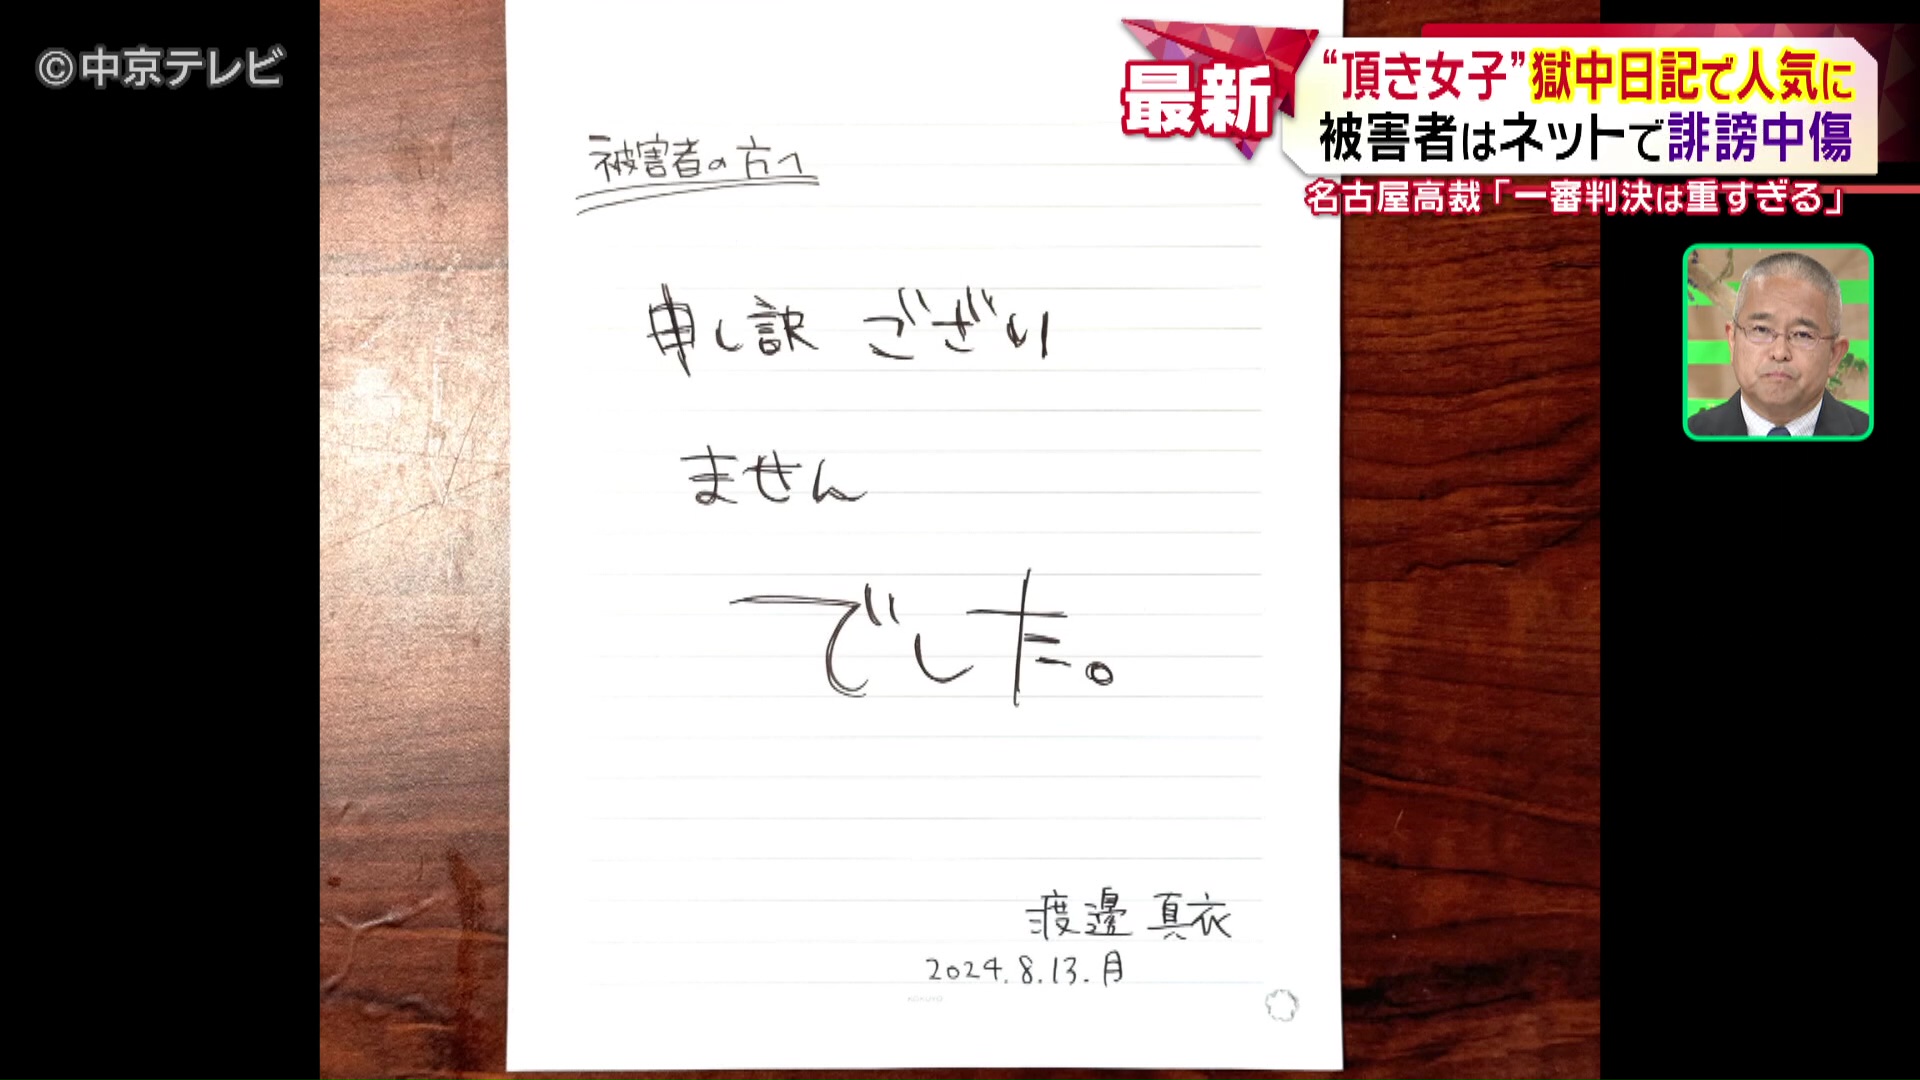 ©中京テレビ
最新
“頂き女子”獄中日記で人気に
被害者はネットで誹謗中傷
名古屋高裁「一審判決は重すぎる」
被害者の方へ
申し訳ござい
ません
でした。
渡邊 真衣
2024.8.13.月
KOKUYO